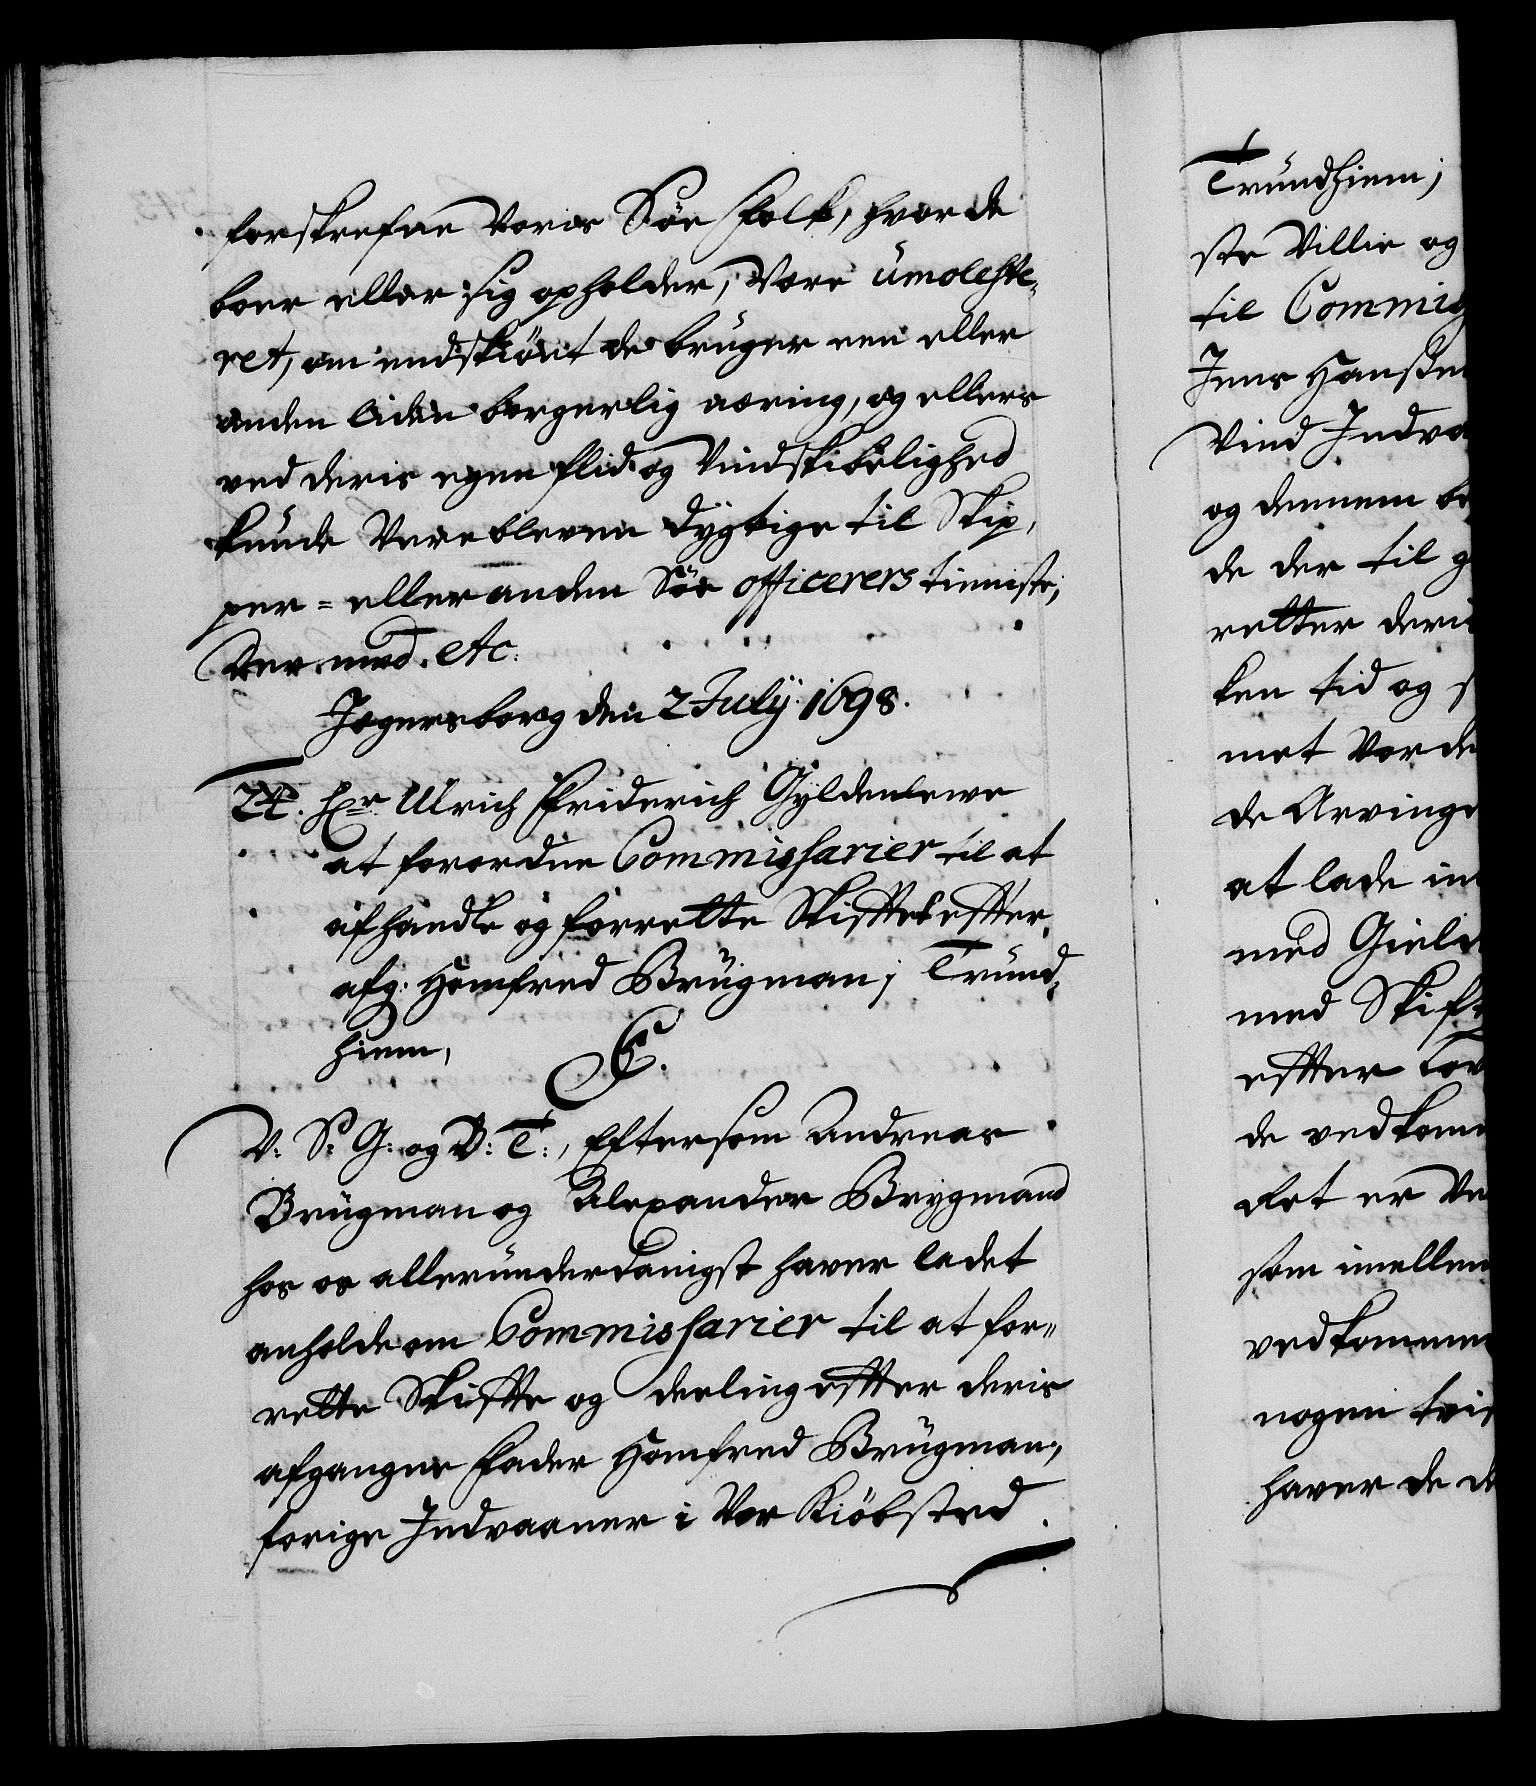 forskrefne Voris Söe folk, hvor de
boer eller sig opholder, Være ümoleste,
ret, om endskiönt de brüger een eller
anden liden borgerlig næring, og ellers
ved deris egen flid og Vindskibelighed
kunde Være bleven dygtige til Skip,
per = eller anden Söe officerers tieniste,
Der med. etc:
Jegersborg den 2 July 1698.
Hr Ulrich Friderich Gyldenlewe
at forordne Commissarier til at
afhandle og forrette Skifftet effter
afg: Homfred Brügman j Trund,
hiem,
C5.
V: S: G: og B: T:, Eftersom Andreas
Brügman og Alexander Brygmand
hos os allerunderdanigst haver ladet
anholde om Commissarier til at for-
rette Skiffte og deeling effter deris
afgangne fader Homfred Brügman,
forige Indvaaner i Vor Kiöbsted
Trundhiem j
ste Villie og
til Commis
Jens Hansen
Vind Indva
og dennem be
de der til g
retter deru
ken tid og s
met Vorde
de Arvinge
at lade in
med Gield
med Skift
effter Lov
de vedkom
det er Ve
som imellem
vedkomme
nogen tvis
haver de d